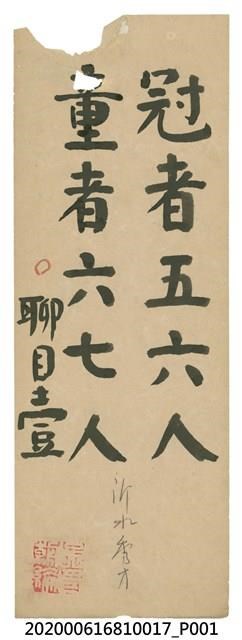 冠者五六人
童者六七人
聊目壹
沂水秀才
202000616810017_P001